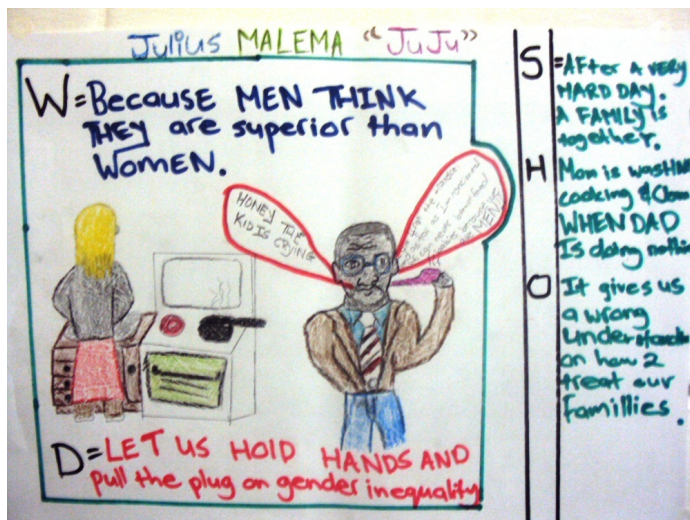 Julius MALEMA "JuJu"
W=Because MEN THINK
THEY are superior than
WOMEN.
HONEY THE
KID IS CRYING
MENS
D=LET US HOlD HANDS AND
pull the plug on gender inequality
S =AFter A VERY
HARD DAY.
A FAMILY is
together.
H Mom is washing
cooking &
WHEN DAD
Is doing
O It gives us
a wrong
on how 2
treat our
Famillies.